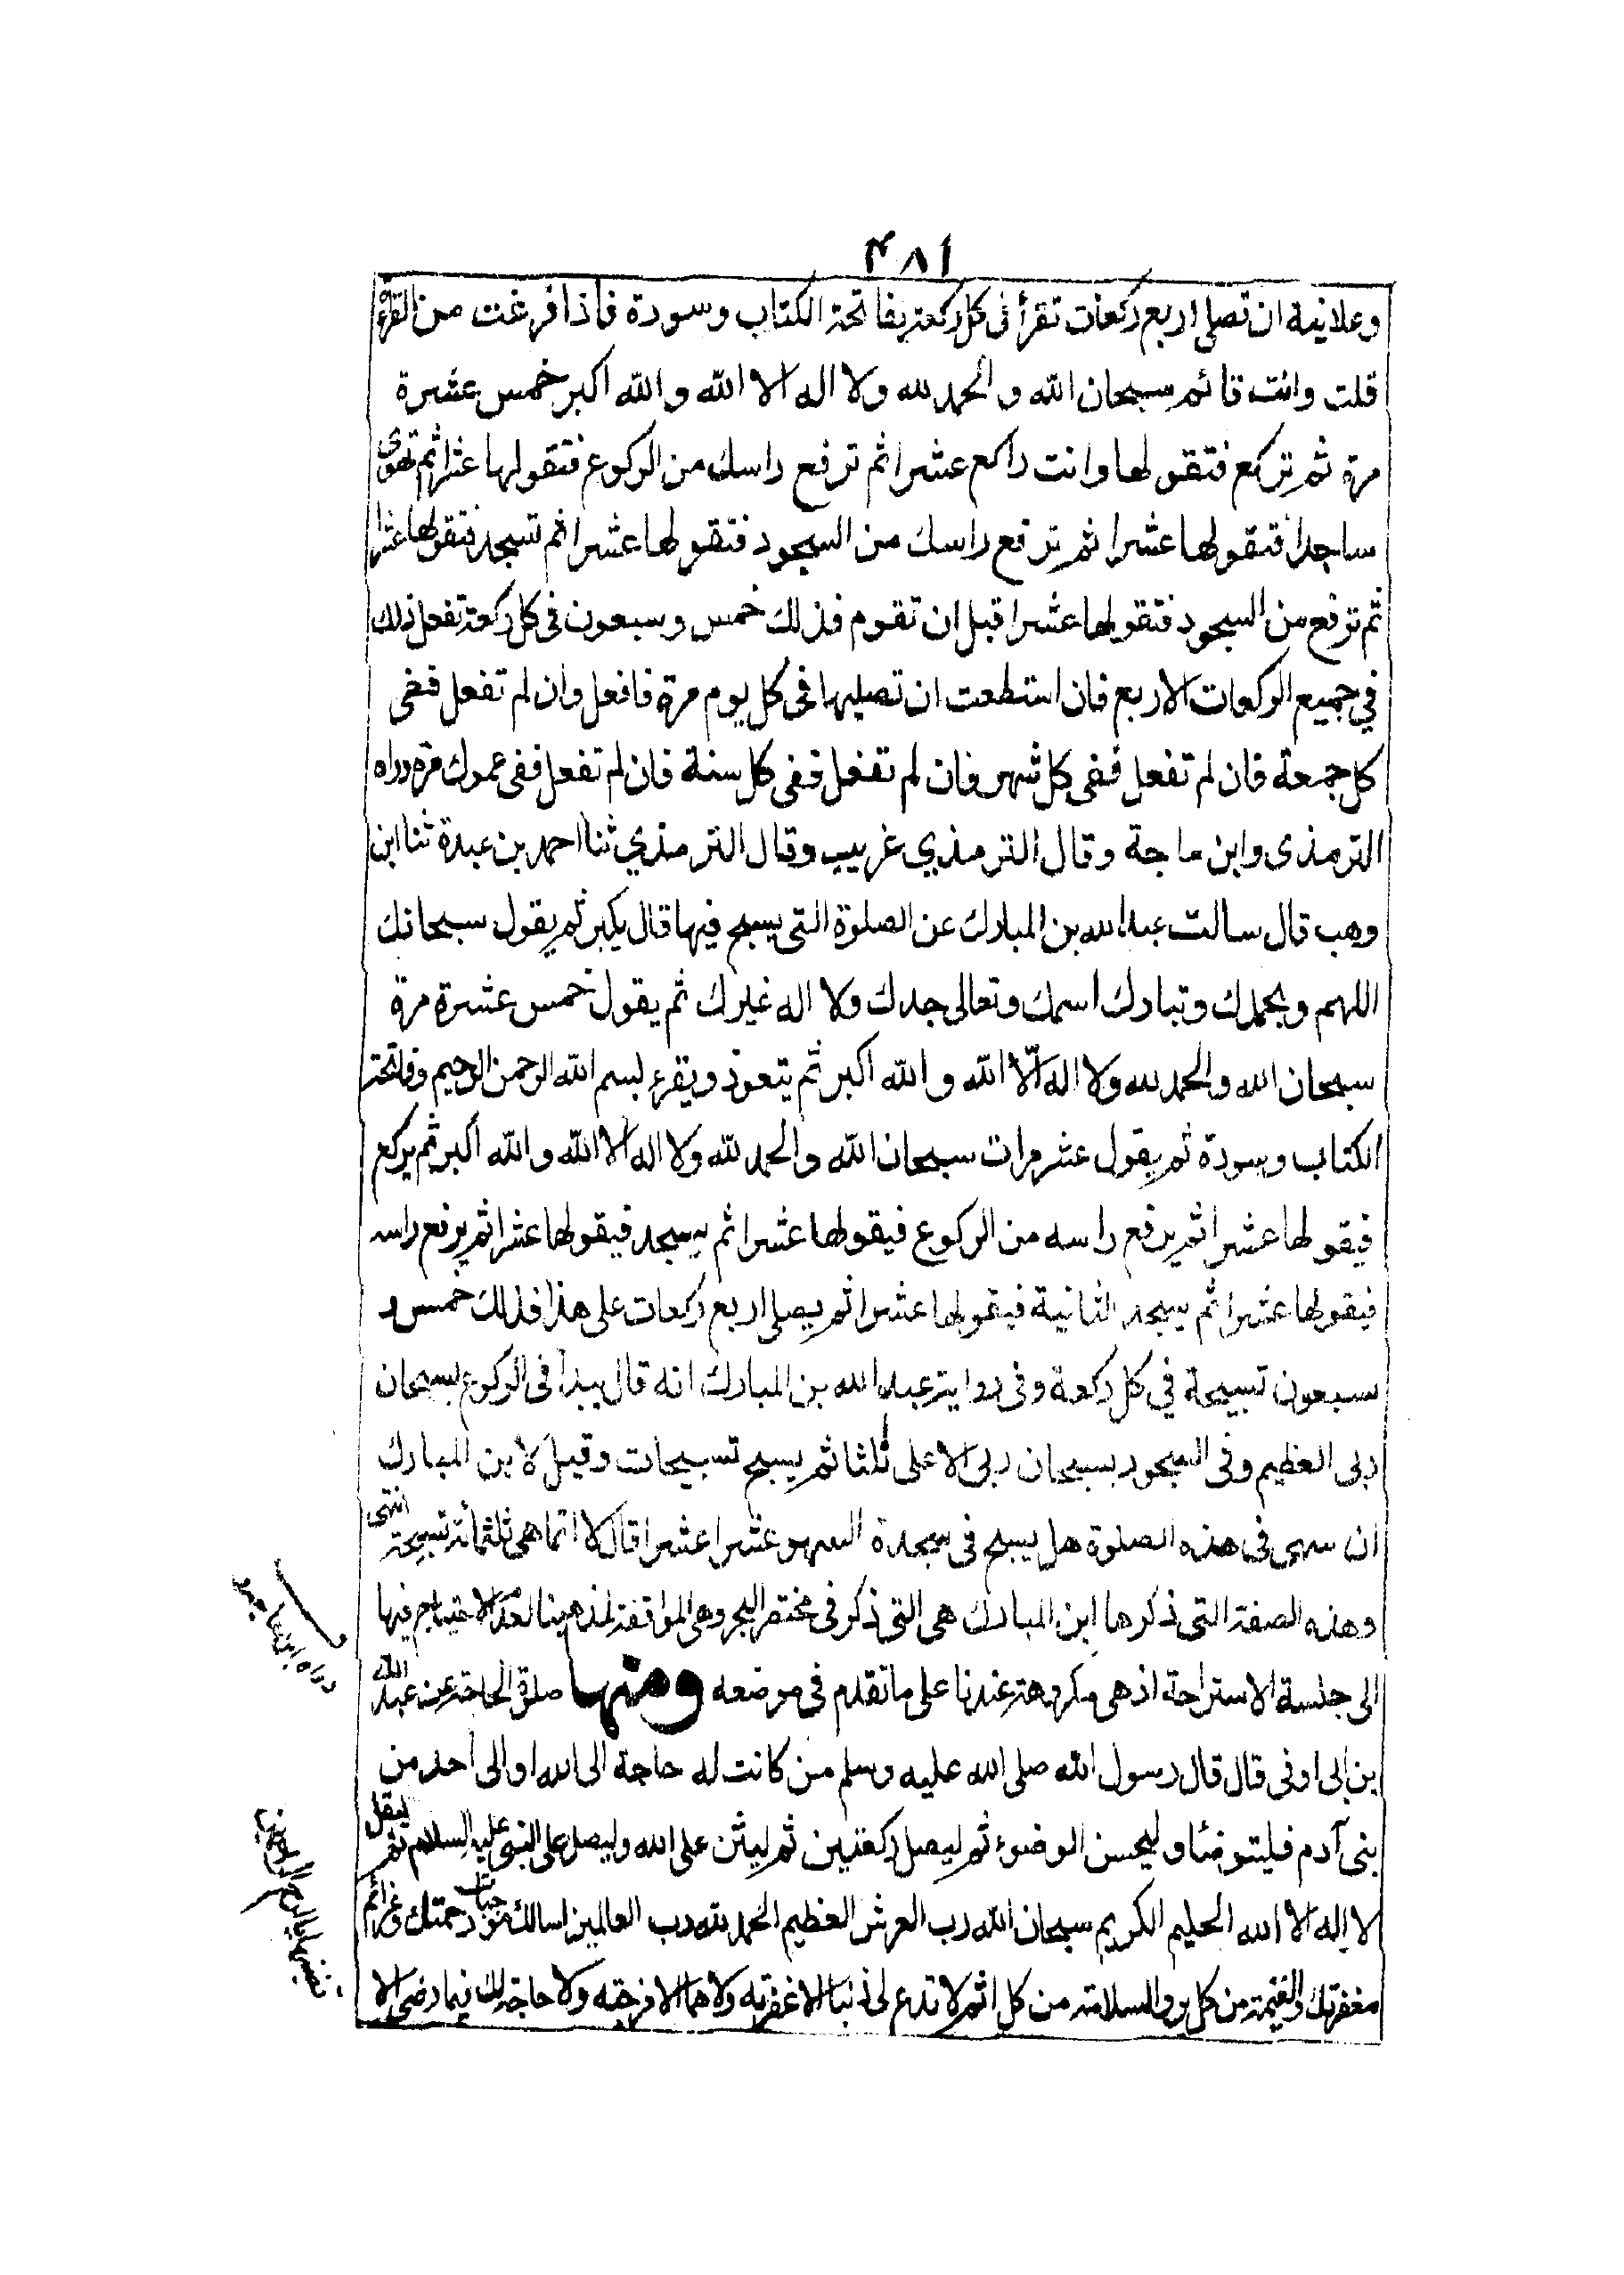 ۴۸۱
وعلانية ان تصلى اربع ركعات تقرأ فى كل ركعة بفاتحة الكتاب وسورة فاذا فرغت من القرءة
قلت وانت قائم سبحان الله و الحمد لله ولا اله الا الله والله اكبر خمس عشرة
مرة ثم تركع فتقولها وانت راكع عشرا ثم ترفع راسك من الركوع فتقولها عشرا ثم تهوى
ساجدا فتقولها عشرا ثم ترفع راسك من السجود فتقولها عشرا ثم تسجد فتقولها عشرا
ثم ترفع من السجود فتقولها عشرا قبل ان تقوم فذلك خمس وسبعون فى كل ركعة تفعل ذلك
في جميع الركعات الاربع فان استطعت ان تصليها فى كل يوم مرة فافعل وان لم تفعل ففى
كل جمعة فان لم تفعل ففى كل شهر فان لم تفعل ففى كل سنة فان لم تفعل ففى عمرك مرة رواه
الترمذى وابن ماجة وقال الترمذي غريب وقال الترمذي ثنا احمد بن عبدة ثنا ابن
وهب قال سالت عبد الله بن المبارك عن الصلوة التى يسبح فيها قال يكبر ثم يقول سبحانك
اللهم وبحمدك وتبارك اسمك وتعالى جدك ولا اله غيرك ثم يقول خمس عشرة مرة
سبحان الله والحمد لله ولا اله الا الله والله اكبر ثم يتعوذ ويقرء بسم الله الرحمن الرحيم وفاتحة
الكتاب وسورة ثم يقول عشر مرات سبحان الله والحمد لله ولا اله الا الله والله اكبر ثم يركع
فيقولها عشرا ثم يرفع راسه من الركوع فيقولها عشرا ثم يسجد فيقولها عشرا ثم يرفع راسه
فيقولها عشرا ثم يسجد الثانية فيقولها عشرا ثم يصلى اربع ركعات على هذا فذلك خمس و
سبعون تسبيحة في كل ركعة وفى رواية عبد الله بن المبارك انه قال يبدأ فى الركوع بسبحان
ربى العظيم وفى السجود بسبحان ربى الاعلى ثلثا ثم يسبح تسبيحات وقيل لابن المبارك
ان سهى فى هذه الصلوة هل يسبح فى سجدة السهو عشرا عشرا قال لا انما هى ثلثمائة تسبيحة انتهى
وهذه الصفة التى ذكرها ابن المبارك هى التى ذكر فى مختصر البحر وهى الموافقة لمذهبنا لعدم الاحتياج فيها
الى جلسة الاستراحة اذ هى مكروهة عندنا على ما تقدم فى موضعه ومنها صلوة الحاجة عن عبد الله
بن ابى اوفى قال قال رسول الله صلى الله عليه وسلم من كانت له حاجة الى الله او الى احد من
بنى آدم فليتوضئا وليحسن الوضوء ثم ليصل ركعتين ثم ليثن على الله وليصل على النبى عليه السلام ثم ليقل
لا اله الا الله الحليم الكريم سبحان الله رب العرش العظيم الحمد لله رب العالمين اسالك موجبات رحمتك وعزائم
مغفرتك والغنيمة من كل بر والسلامة من كل اثم لا تدع لى ذنبا الا غفرته ولا هما الا فرجته ولا حاجة لك فيها رضى الا
قضيتها يا ارحم الراحمين